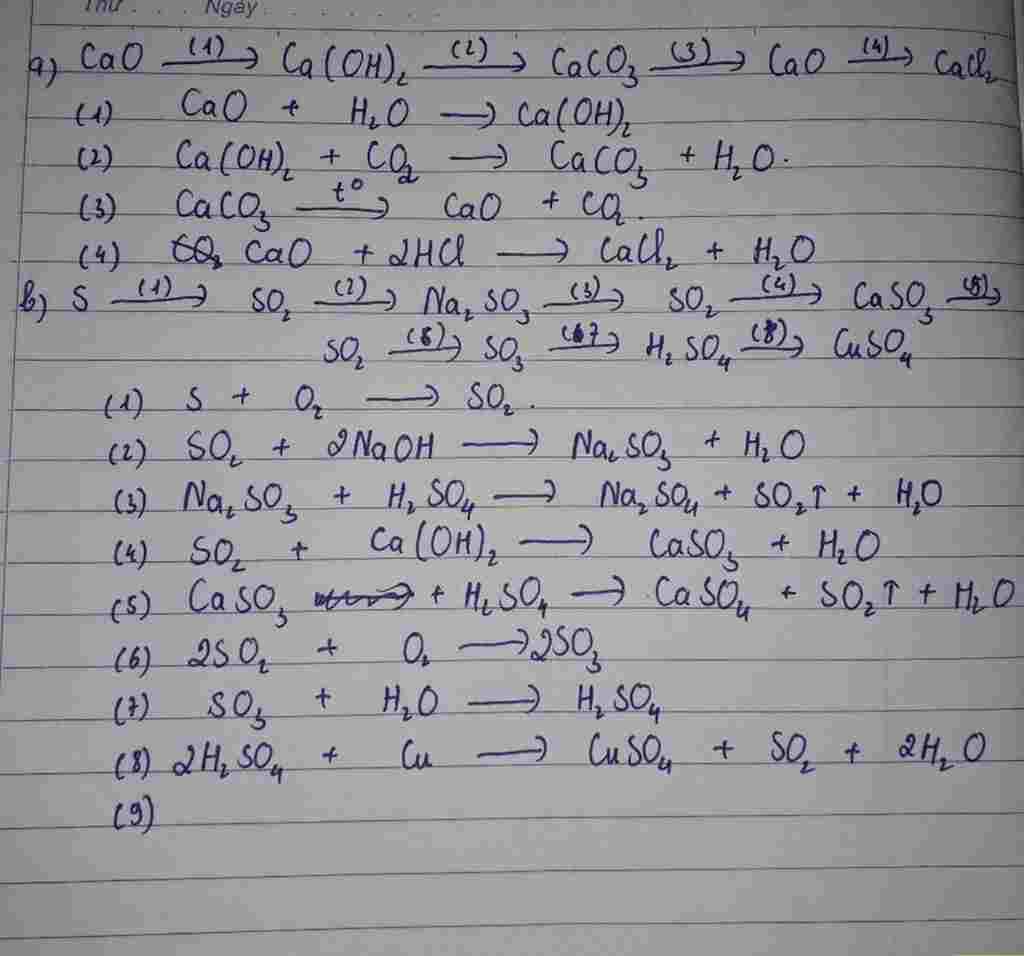 Thứ . . . Ngày . . . . . . .
a) CaO —(1)→ Ca(OH)₂ —(2)→ CaCO₃ —(3)→ CaO —(4)→ CaCl₂
(1) CaO + H₂O → Ca(OH)₂
(2) Ca(OH)₂ + CO₂ → CaCO₃ + H₂O.
(3) CaCO₃ —t°→ CaO + CO₂.
(4) CaO + 2HCl → CaCl₂ + H₂O
b) S —(1)→ SO₂ —(2)→ Na₂SO₃ —(3)→ SO₂ —(4)→ CaSO₃ —(5)→
SO₂ —(6)→ SO₃ —(7→ H₂SO₄ —(8)→ CuSO₄
(1) S + O₂ → SO₂.
(2) SO₂ + 2NaOH → Na₂SO₃ + H₂O
(3) Na₂SO₃ + H₂SO₄ → Na₂SO₄ + SO₂↑ + H₂O
(4) SO₂ + Ca(OH)₂ → CaSO₃ + H₂O
(5) CaSO₃ + H₂SO₄ → CaSO₄ + SO₂↑ + H₂O
(6) 2SO₂ + O₂ → 2SO₃
(7) SO₃ + H₂O → H₂SO₄
(8) 2H₂SO₄ + Cu → CuSO₄ + SO₂ + 2H₂O
(9)